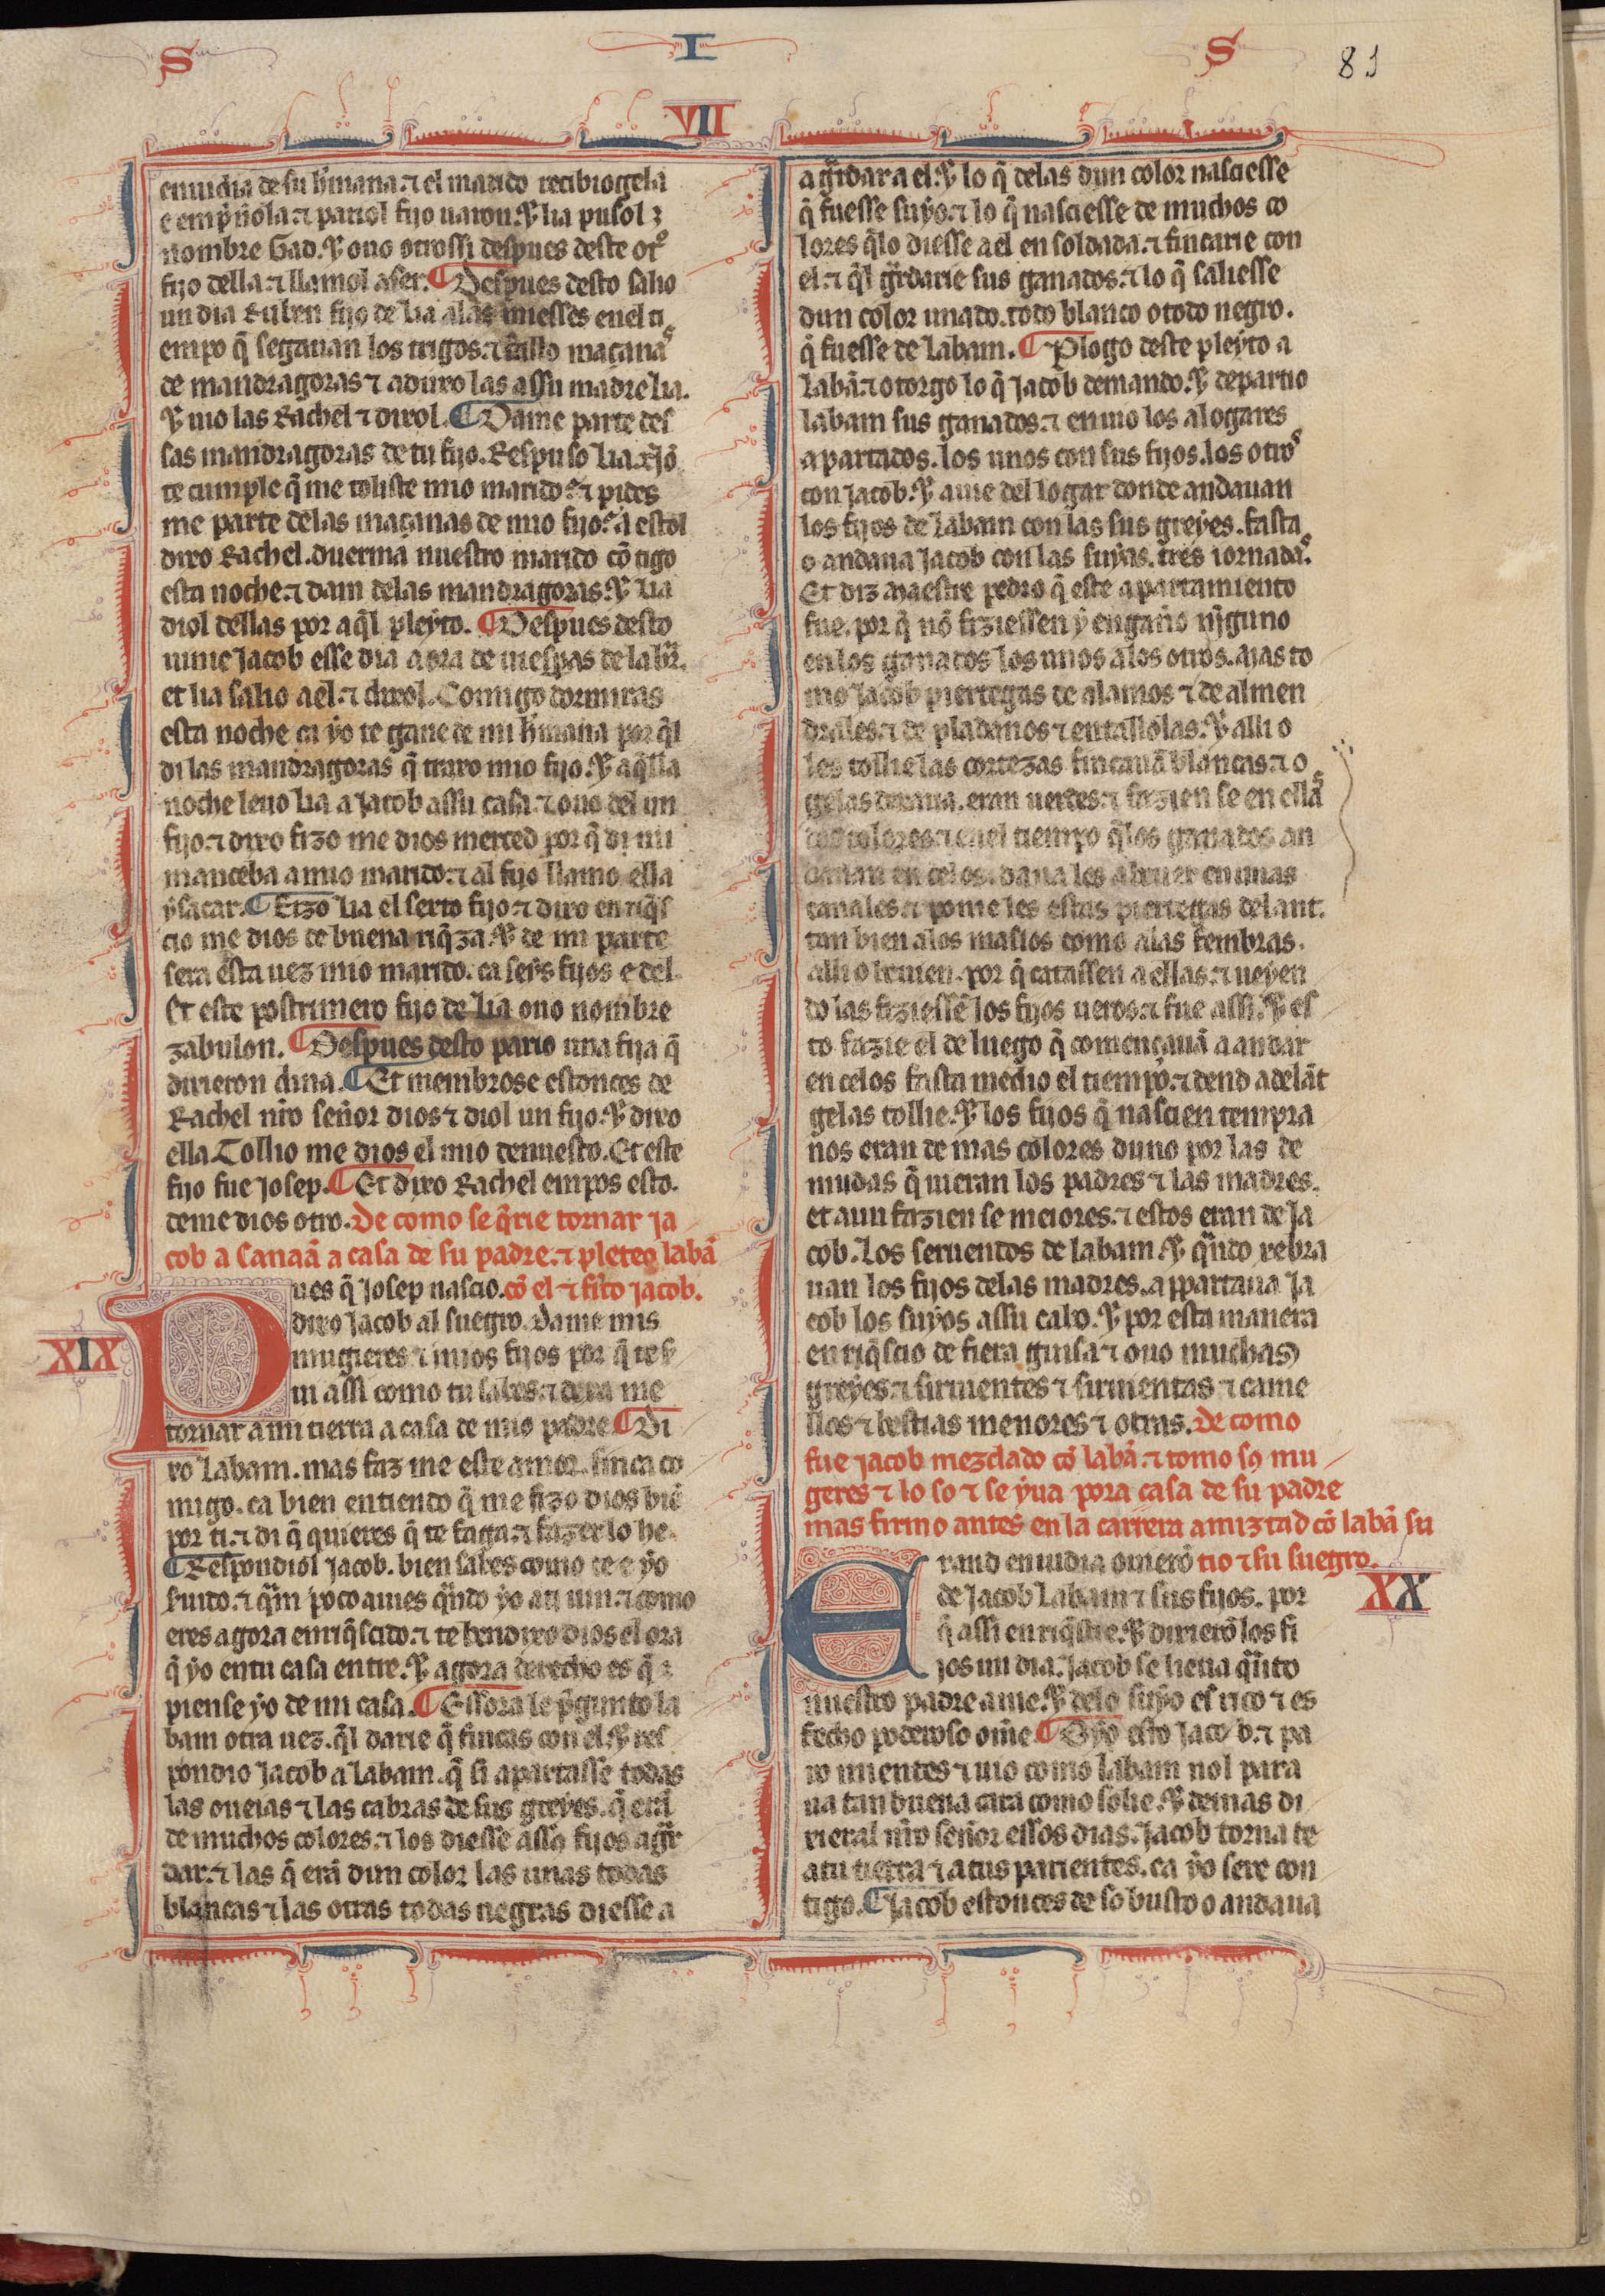 S I S 81
VII
enuidia de su h̃mana. ⁊ el marido recibiogela
e emp̃ñola. ⁊ pariol fijo uaron. Y lia pusol ⁊
nombre Gad. Y ouo otrossi despues deste otº
fijo della. ⁊ llamol aser. ¶ Despues desto salio
un dia Ruben fijo de lia alas miesses enel ti
empo q̃ segauan los trigos. ⁊ fallo maçanas
de mandragoras ⁊ aduxo las assu madre lia.
Y uio las Rachel ⁊ dixol. ¶ Dame parte des
sas mandragoras de tu fijo. Respuso lia. ⁊ nõ
te cumple q̃ me toliste mio marido. ⁊ pides
me parte delas maçanas de mio fijo. a estol
dixo Rachel. duerma nuestro marido cõtigo
esta noche. ⁊ dam delas mandragoras. Y lia
diol dellas por aq̃l pleyto. ¶ Despues desto
uinie Jacob esse dia a ora de uiesp̃as de labr̃.
et lia salio a el. ⁊ dixol. Comigo dormiras
esta noche ca yo te gane de mi h̃mana por q̃l
di las mandragoras q̃ traxo mio fijo. Y aq̃lla
noche leuo lia a Jacob assu casa. ⁊ ouo del un
fijo. ⁊ dixo fizo me dios merced por q̃ di mi
manceba amio marido. ⁊ al fijo llamo ella
ysacar. ¶ Fizo lia el sexto fijo. ⁊ dixo enriq̃s
cio me dios de buena riq̃za. Y de mi parte
sera esta uez mio marido. ca seys fijos e del.
Et este postrimero fijo de lia ouo nombre
zabulon. ¶ Despues desto pario una fija q̃
dixieron dina. ¶ Et membrose estonces de
Rachel nr̃o señor dios ⁊ diol un fijo. Y dixo
ella Tollio me dios el mio denuesto. Et este
fijo fue Josep. ¶ Et dixo Rachel empos esto.
deme dios otro. De como se q̃rie tornar ja
cob a Canaã a casa de su padre. ⁊ pleteo labã
XIX
Pues q̃ Josep nascio. cõ el ⁊ finco jacob.
dixo Jacob al suegro. Dame mis
mugieres ⁊ mios fijos por q̃ te s̃
ui assi como tu sabes. ⁊ dexa me
tornar a mi tierra a casa de mio padre. ¶ Di
xo labam. mas faz me este amor. finca co
migo. ca bien entiendo q̃ me fizo dios biẽ
por ti. ⁊ di q̃ quieres q̃ te faga. ⁊ fazerlo he.
¶ Respondiol Jacob. bien sabes como te e yo
seruido. ⁊ q̃m poco auies q̃ndo yo a ti uin. ⁊ como
eres agora enriq̃scido. ⁊ te bendixo dios el ora
q̃ yo en tu casa entre. Y agora derecho es q̃ ⁊
piense yo de mi casa. ¶ Essora le p̃gunto la
bam otra uez. q̃l darie q̃ fincas con el. Y res
pondio Jacob a labam. q̃ si apartasse todas
las oueias ⁊ las cabras de sus greyes. q̃ erã
de muchos colores. ⁊ los diesse assos fijos agr̃
dar. ⁊ las q̃ erã dun color las unas todas
blancas ⁊ las otras todas negras diesse a
a gr̃dar a el. Y lo q̃ delas dun color nasciesse
q̃ fuesse suyo. ⁊ lo q̃ nasciesse de muchos co
lores q̃lo diesse a el en soldada. ⁊ fincarie con
el. ⁊ q̃l gr̃darie sus ganados. ⁊ lo q̃ saliesse
dun color unado. todo blanco o todo negro.
q̃ fuesse de labam. ¶ Plogo deste pleyto a
labã. ⁊ otorgo lo q̃ Jacob demando. Y departio
labam sus ganados. ⁊ enuio los a logares
apartados. los unos con sus fijos. los otros
con jacob. Y auie del logar donde andauan
los fijos de labam con las sus greyes. fasta
o andaua Jacob con las suyas. tres iornadas.
Et diz maestre pedro q̃ este apartamiento
fue. por q̃ nõ fiziessen y engaño nj̃guno
en los ganados los unos alos otros. Mas to
mo Jacob piertegas de alamos ⁊ de almen
drales. ⁊ de pladanos ⁊ entallolas. Y alli o
les tollie las cortezas fincauã blancas. ⁊ o
gelas dexaua. eran uerdes. ⁊ fazien se en ellas
dos colores. ⁊ enel tiempo q̃los ganados an
dauan en celos. daua les a beuer en unas
canales. ⁊ ponie les estas piertegas delant.
tan bien alos maslos como alas fembras.
alli o beuien. por q̃ catassen a ellas. ⁊ ueyen
do las fiziessẽ los fijos ueros. ⁊ fue assi. Y es
to fazie el de luego q̃ començauã a andar
en celos fasta medio el tiempo. ⁊ dend adelãt
gelas tollie. Y los fijos q̃ nascien tempra
nos eran de mas colores duno por las de
mudas q̃ uieran los padres ⁊ las madres.
et aun fazien se meiores. ⁊ estos eran de Ja
cob. los seruendos de labam. Y q̃ndo rebra
uan los fijos delas madres. apartaua Ja
cob los suyos assu cabo. Y por esta manera
enriq̃scio de fiera guisa ⁊ ouo muchas
greyes. ⁊ siruientes ⁊ siruientas ⁊ came
llos ⁊ bestias menores ⁊ otras. De como
fue jacob mezclado cõ labã. ⁊ tomo sꝯ mu
geres ⁊ lo so ⁊ se yua pora casa de su padre
mas firmo antes en la carrera amiztad cõ labã su
Erand enuidia ouierõ tio ⁊ su suegro.
XX
de Jacob labam ⁊ sus fijos. por
q̃ assi enriq̃scie. Y dixierõ los fi
jos un dia. Jacob se lieua q̃nto
nuestro padre auie. Y delo suyo es rico ⁊ es
fecho poderoso om̃e. ¶ Oyo esto Jacob. ⁊ pa
ro mientes ⁊ uio como labam nol para
ua tan buena cara como solie. Y demas di
xieral nr̃o señor essos dias. Jacob torna te
atu tierra ⁊ a tus parientes. ca yo sere con
tigo. ¶ Jacob estonces de so busto o andaua